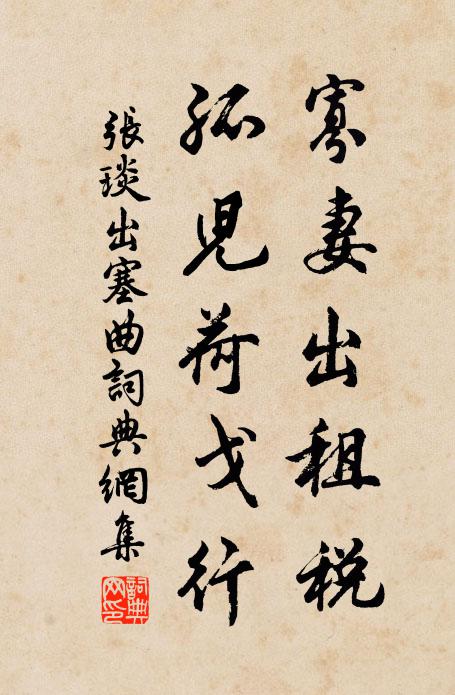 寡妻出租税
孤児荷戈行
張琰出塞曲詞典網集
詞典网印